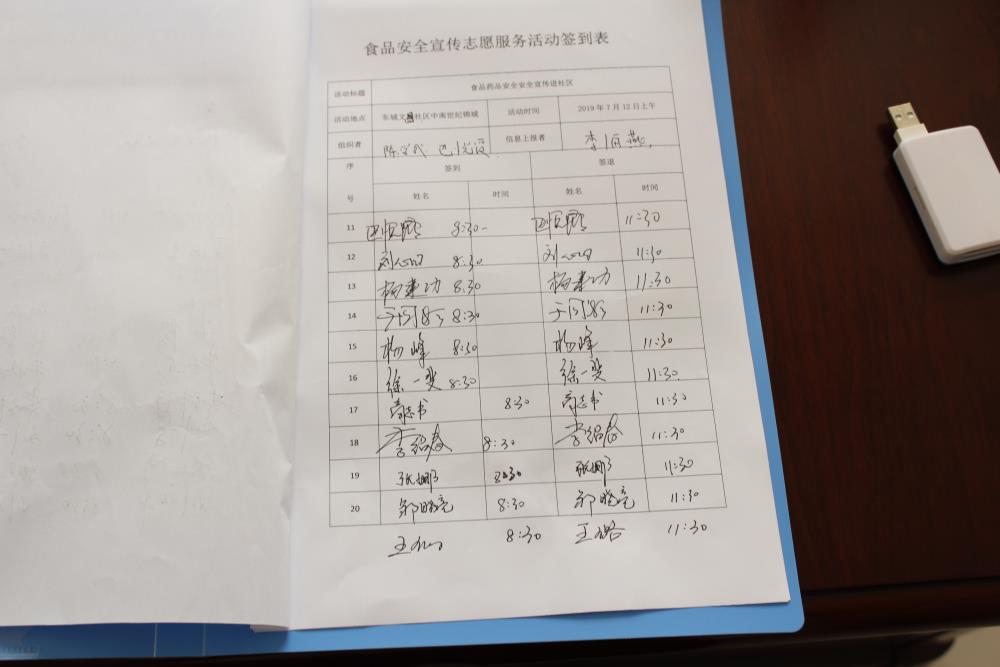 食品安全宣传志愿服务活动签到表
活动标题 食品药品安全安全宣传进社区
活动地点 东城文昌社区中南世纪锦城 活动时间 2019年7月12日上午
组织者 信息上报者
序号 签到 签退
姓名 时间 姓名 时间
11 8:30 11:30
12 刘心田 8:30 刘心田 11:30
13 杨建功 8:30 杨建功 11:30
14 8:30 11:30
15 杨峰 8:30 杨峰 11:30
16 徐一斐 8:30 徐一斐 11:30
17 高志书 8:30 高志书 11:30
18 李绍春 8:30 李绍春 11:30
19 张娜 8:30 张娜 11:30
20 郭晓亮 8:30 郭晓亮 11:30
王 8:30 王 11:30